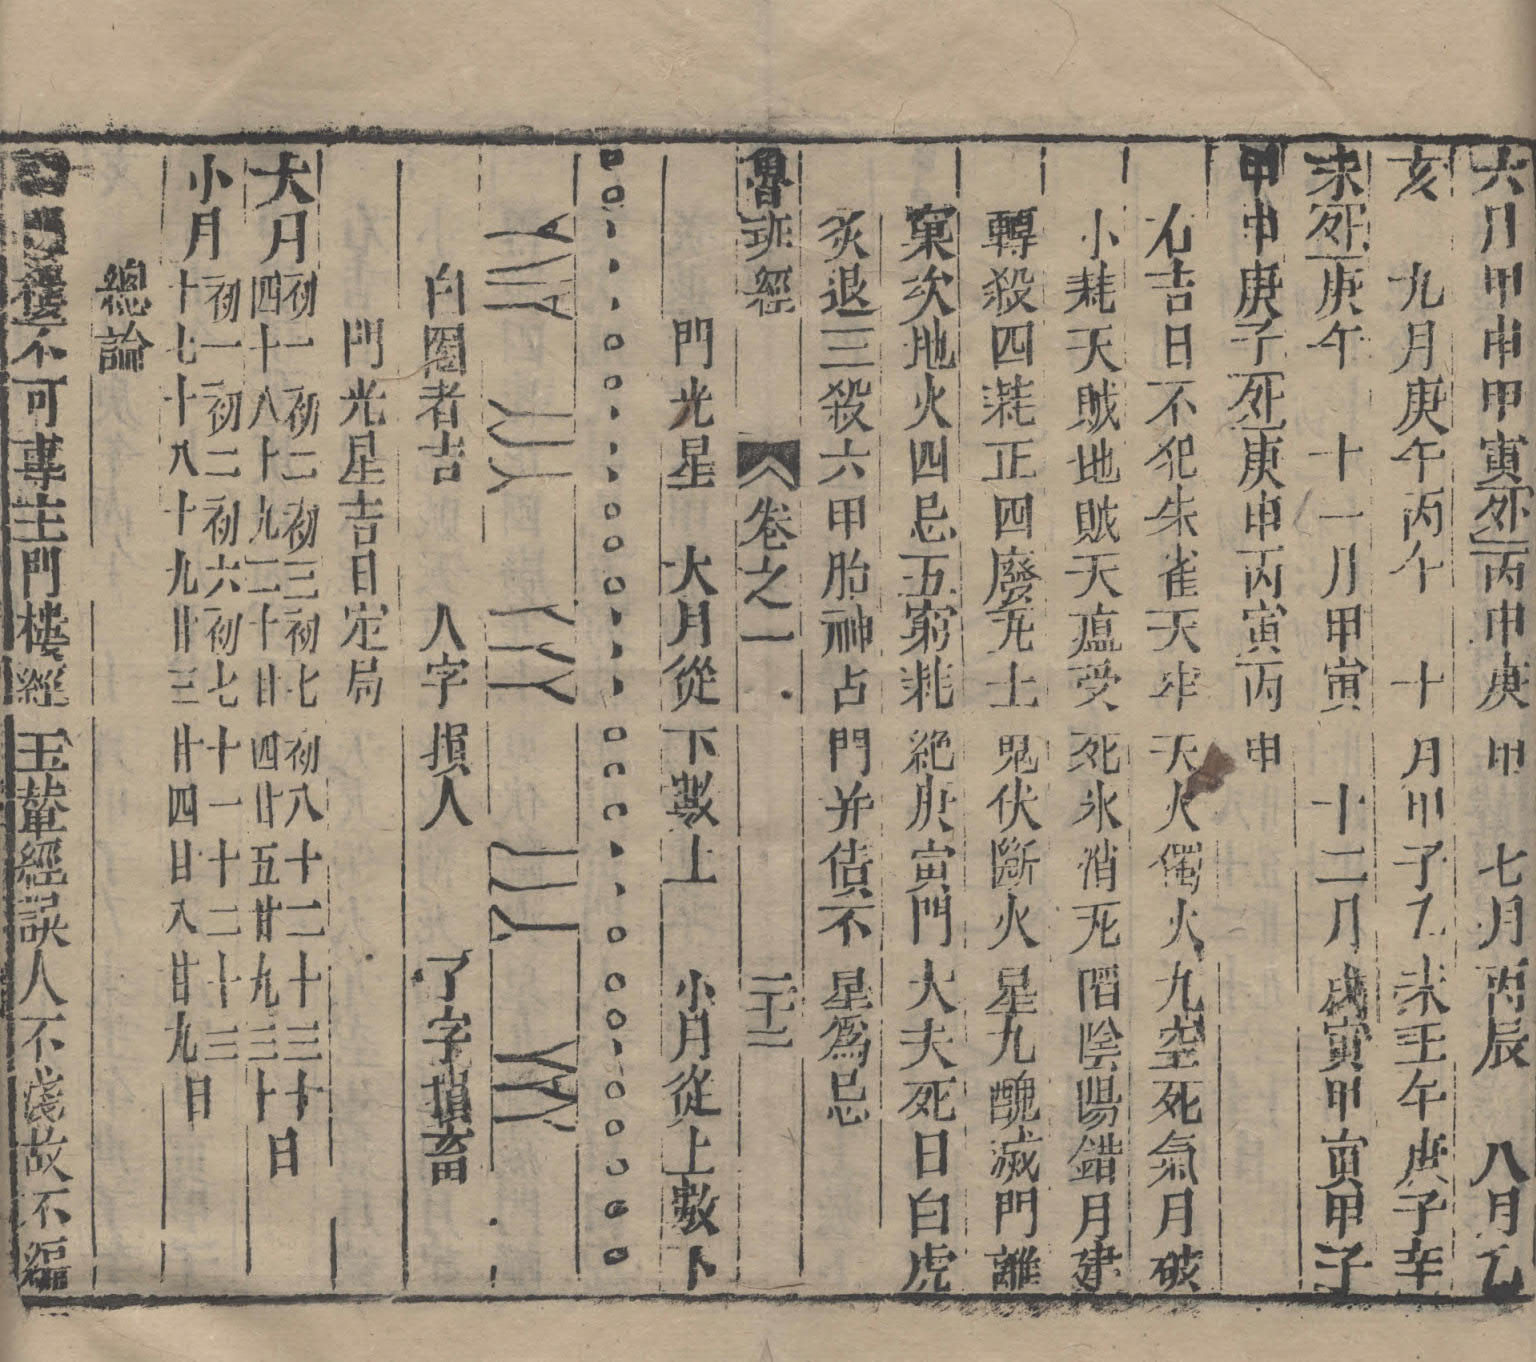 六月甲申甲寅死丙申庚申 七月丙辰 八月乙
亥 九月庚午丙午 十月甲子乙未壬午庚子辛
未死庚午 十一月甲寅 十二月戊寅甲寅甲子
甲申庚子死庚申丙寅丙申
右吉日不犯朱雀天牢天火獨火九空死氣月破
小耗天賊地賊天瘟受死氷消瓦陷陰陽錯月建
轉殺四耗正四廢九土鬼伏斷火星九醜滅門離
窠次地火四忌五窮耗絶庚寅門大夫死日白虎
炙退三殺六甲胎神占門并債不星為忌
魯班經 卷之一 二十二
門光星 大月從下數上 小月從上數下
白圈者吉 人字損人 丫字損畜
門光星吉日定局
大月初一初二初三初七初八十二十三十
四十八十九二十廿四廿五廿九三十日
小月初一初二初六初七十一十二十三
十七十八十九廿三廿四廿八廿九日
總論
樓不可專主門樓經玉輦經誤人不淺故不編